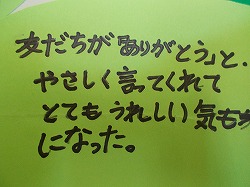 友だちが「ありがとう」と、
やさしく言ってくれて
とてもうれしい気もち
になった。